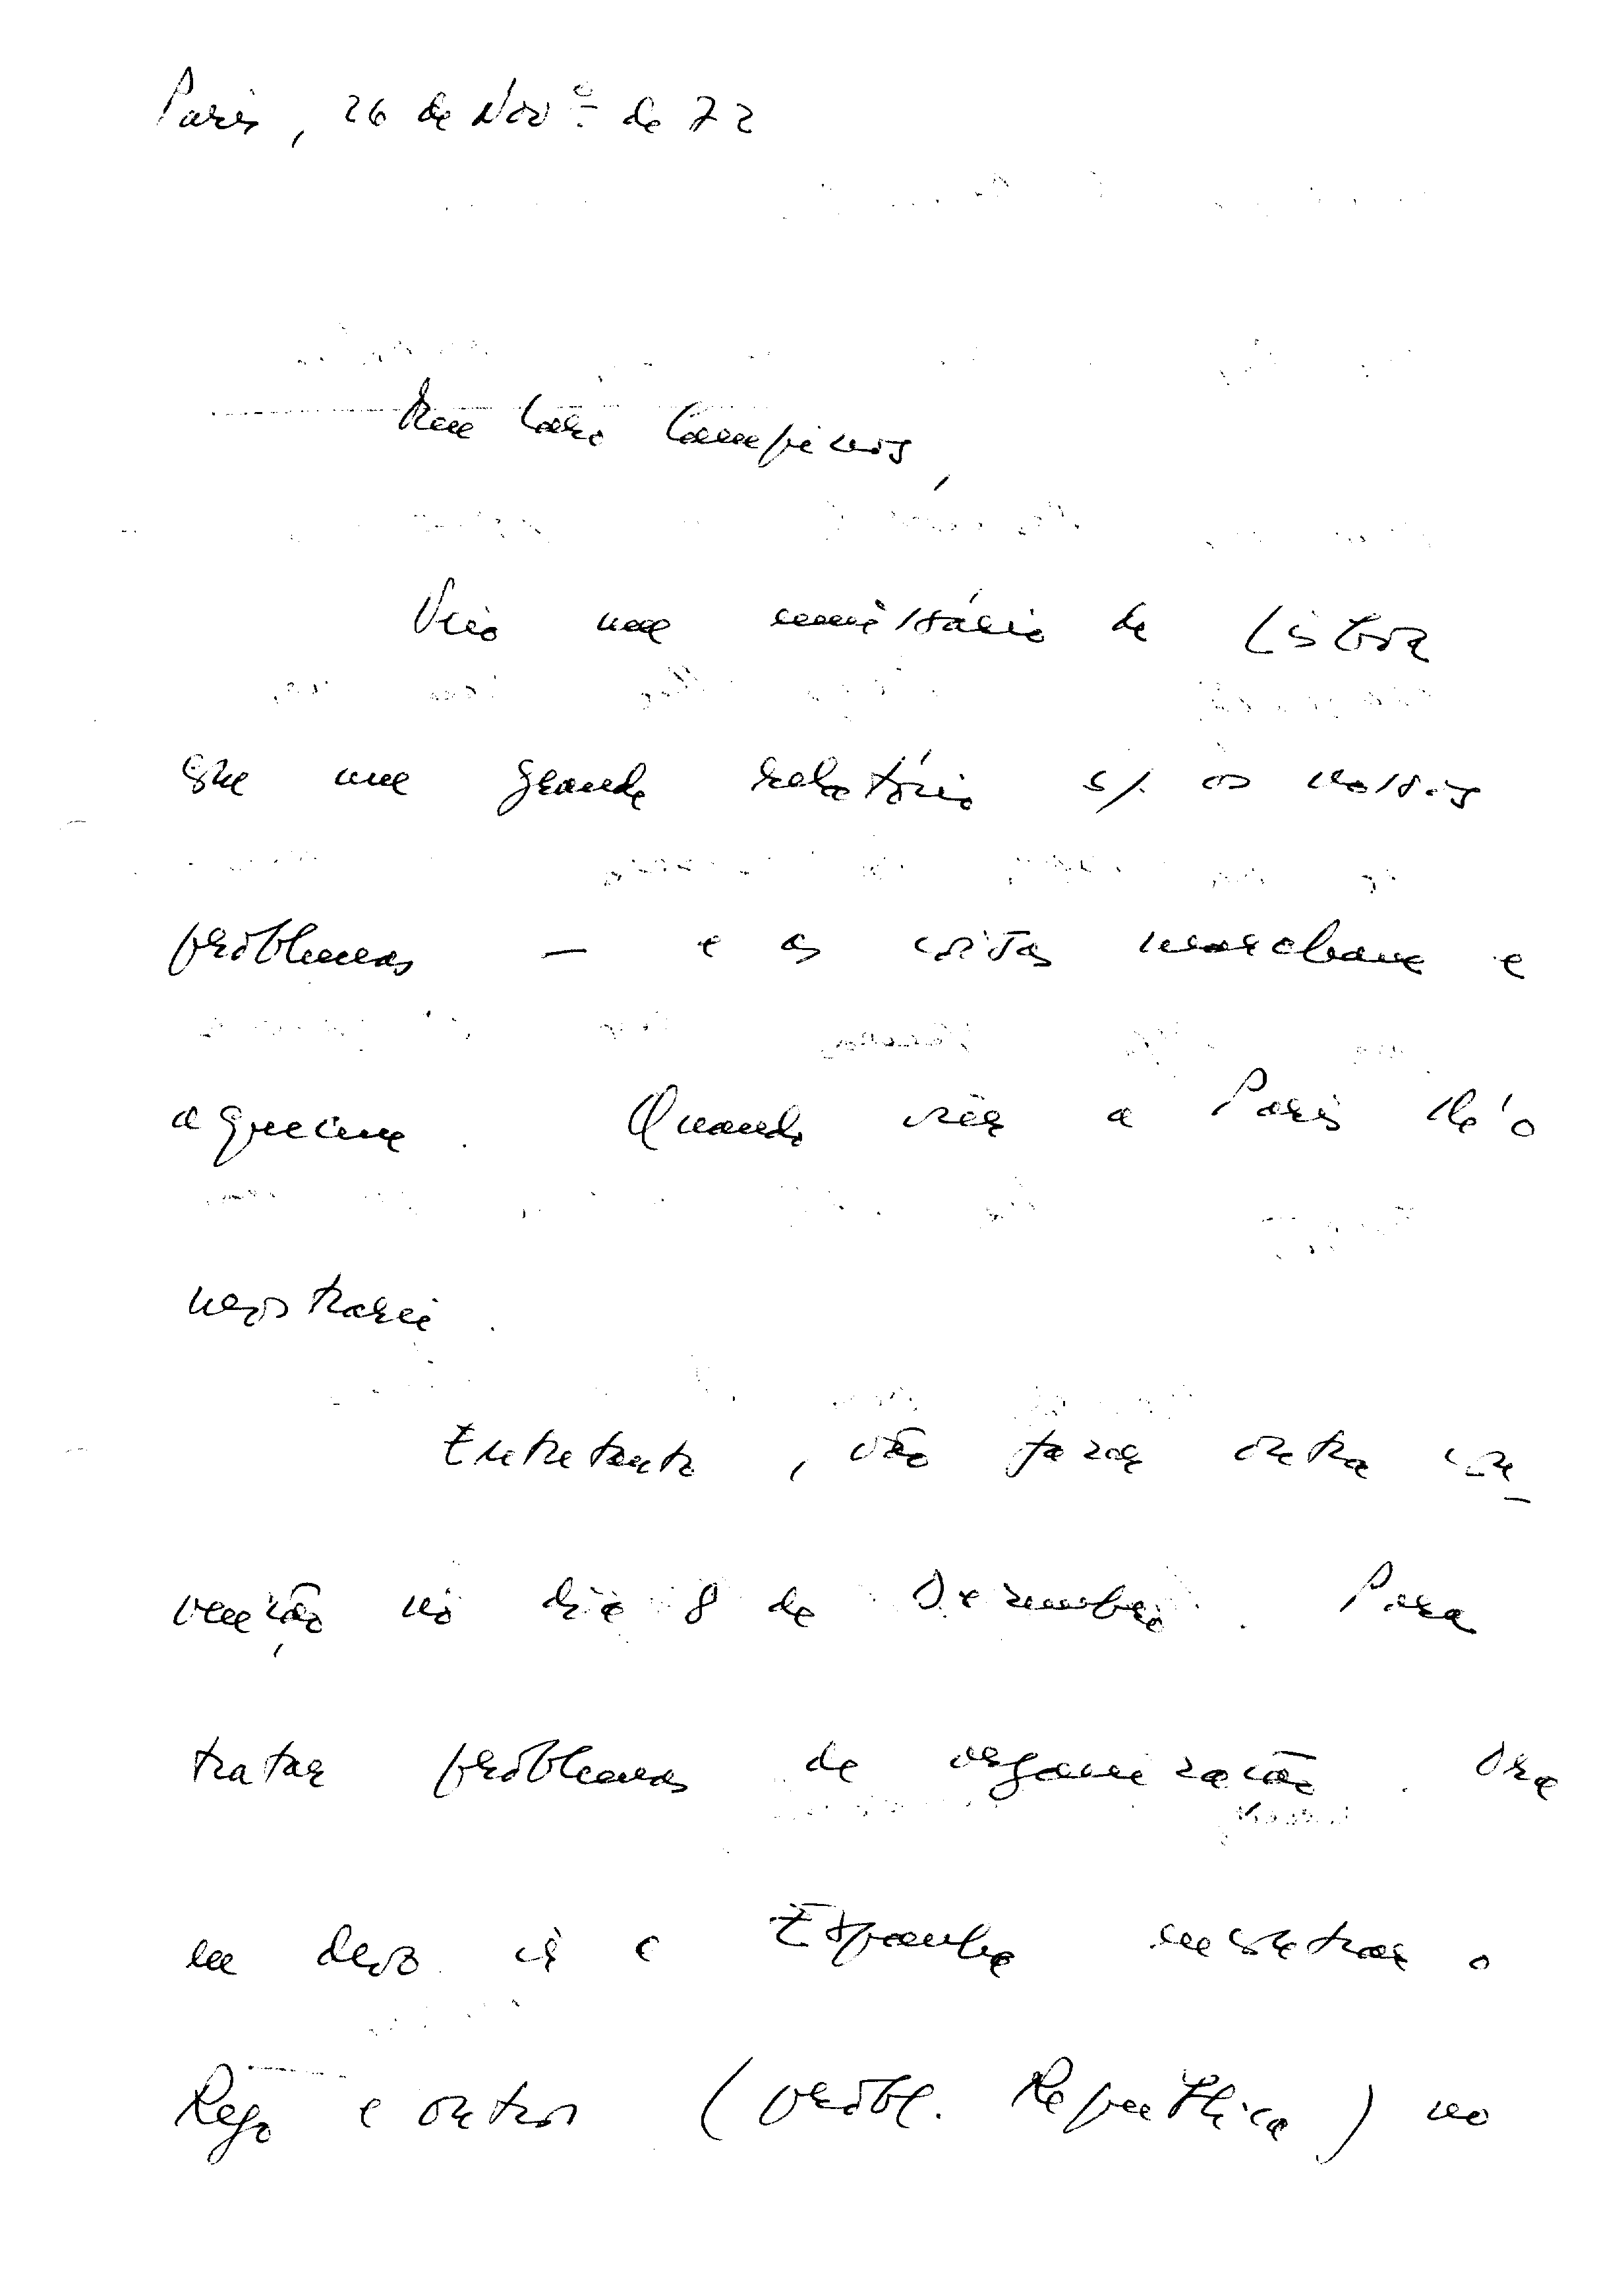 Paris, 26 de Novº de 72
Meu Caro Campinos,
Veio um emissário de Lisboa
que um grande relatório s/. os nossos
problemas — e as coisas marcham e
aquecem. Quando vier a Paris lh'o
mostrarei.
Entretanto, vão fazer outra con-
venção no dia 8 de Dezembro. Para
tratar problemas de organização. Ora
eu devo ir a Espanha encontrar o
Rego e outros (probl. República) no